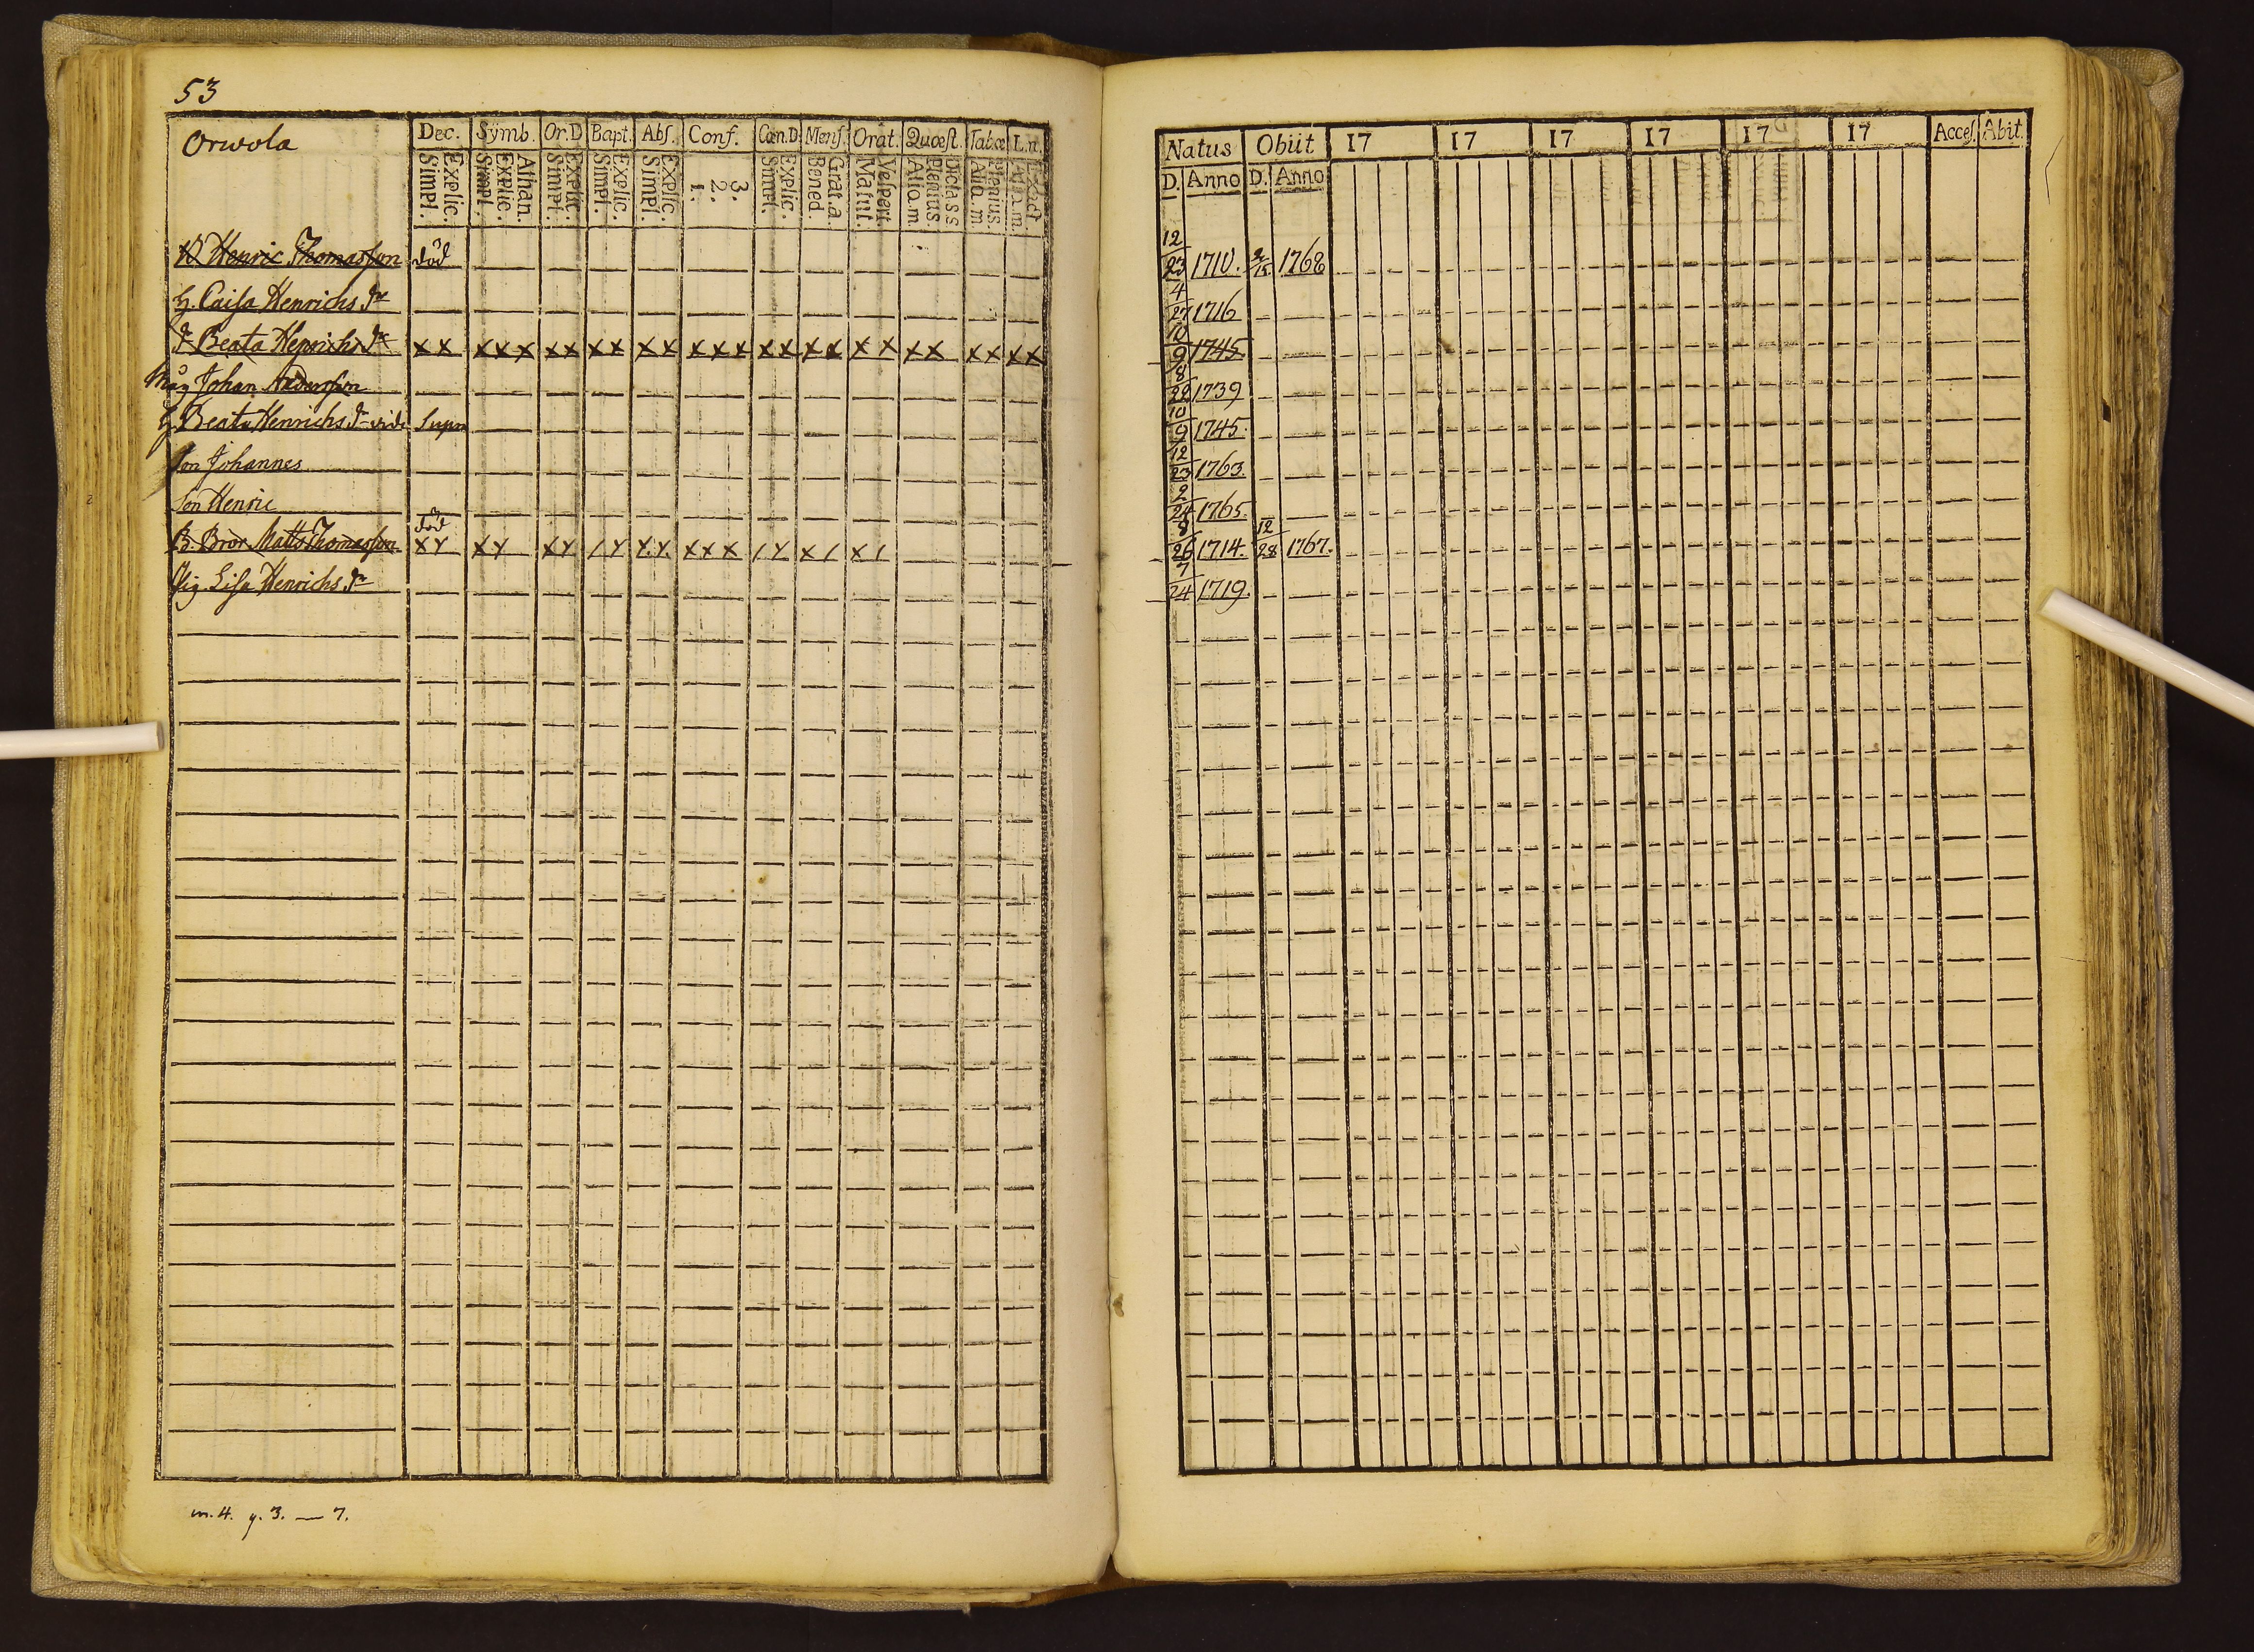 53
Orwola
Dec. Symb. Or.D Bapt. Abs. Conf. Cœn.D. Mens. Orat. Quæst. Tabæ L.n.
Explic. Simpl. Athan. Explic. Simpl. Explic. Simpl. Explic. Simpl. Explic. Simpl. 3. 2. 1. Explic. Simpl. Grat.a Bened. Vespert. Matut. Dicta s.s. Plenius. Aliq.m. Plenius. Aliq.m. Exact Aliq.m.
Natus Obiit 17 17 17 17 17 17 Acces. Abit.
D. Anno D. Anno
B Henric Thomasson död 12/23 1710. 2/15 1768
H. Caisa Henrichs dr 4/27 1716
d Beata Henrichs dr x x x x x x x x x x x x x x x x x x x x x x x x x x 10/9 1745
Måg Johan Andersson 8/22 1739
H. Beata Henrichs dr vide Supra 10/9 1745.
Son Johannes 12/23 1763.
Son Henric 2/24 1765.
död
B. Bror Matts Thomasson x x x x x x / x x x x x x / x x / x / 8/26 1714. 12/28 1767.
Lisa Henrichs dr 7/24 1719.
m. 4. q. 3. — 7.